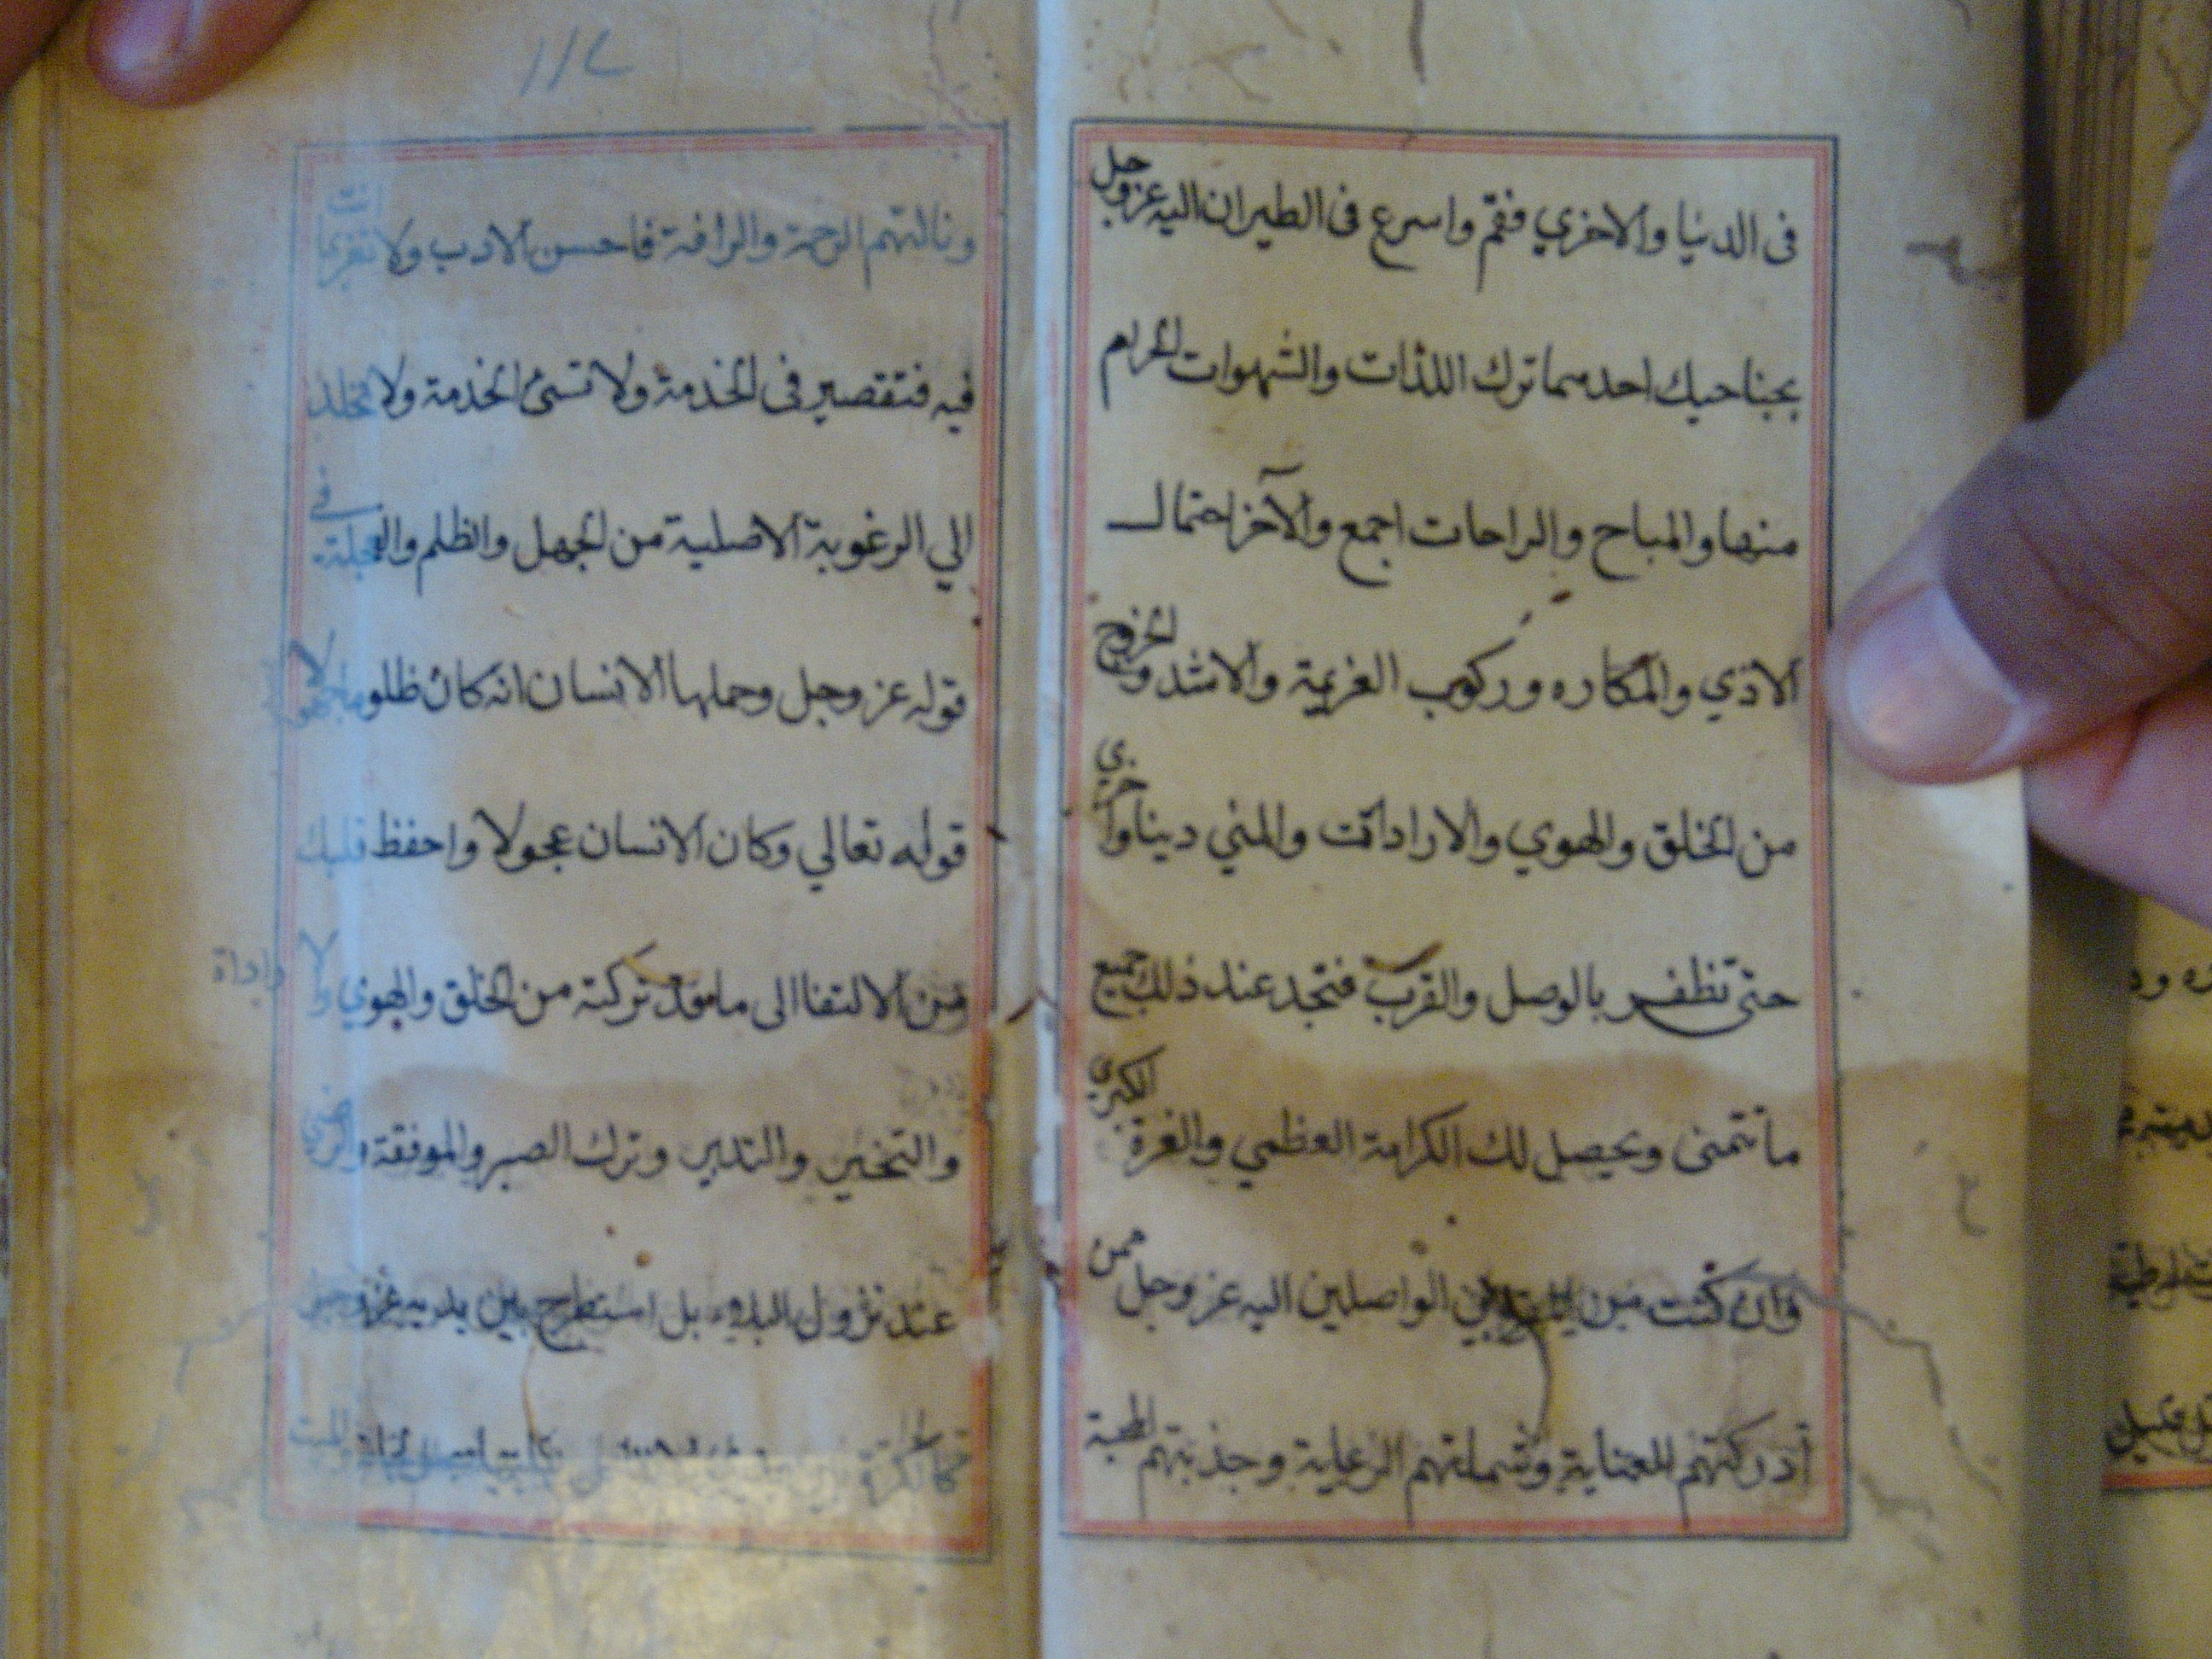 فى الدنيا والاخري فقم واسرع فى الطيران اليه عزوجل
بجناحيك احدهما ترك اللذات والشهوات الحرام
منها والمباح والراحات اجمع والآخر احتمال
الاذي والمكاره وركوب الغريمة والاشد والخروج
من الخلق والهوي والارادات والمني دينا واخري
حتى تظفر بالوصل والقرب فتجد عند ذلك جميع
ماتتمنى ويحصل لك الكرامة العظمي والغرة الكبري
وان كنت من الواصلين اليه عزوجل ممن
ادركتهم العناية وشملتهم الرعاية وجذبتهم المحبة
112
ونالتهم الرحمة والرافة فاحسن الادب ولا تغتر بما انت
فيه فتقصير فى الخدمة ولا تسئ الخدمة ولا تخلد
الي الرغوبة الاصلية من الجهل والظلم والعجلة فى
قوله عزوجل وحملها الانسان انه كان ظلوما جهولا
قوله تعالي وكان الانسان عجولا واحفظ قلبك
من الالتفاالى ماقد تركته من الخلق والهوي ولا
واداة
والتخير والتدبير وترك الصبر والموفقة والرضى
عند نزول البلاء بل استطرح بين يديه عزوجل
كالكرة